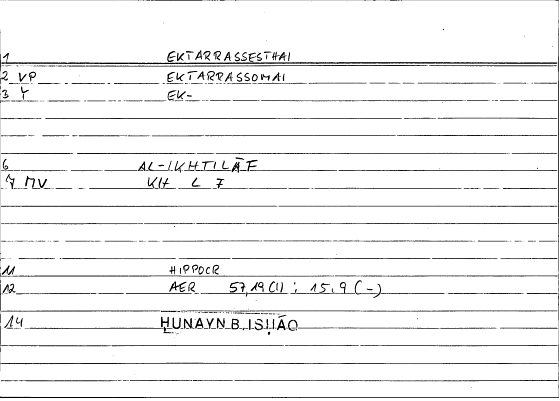 1 EKTARRASSESTHAI
2 VP EKTARRASSOMAI
3 Y EK-
6 AL-IKHTILĀF
7 MV KH L F
11 HIPPOCR
12 AER 57,19 (1) ; 15.9 (-)
14 ḤUNAYN B. ISḤĀQ